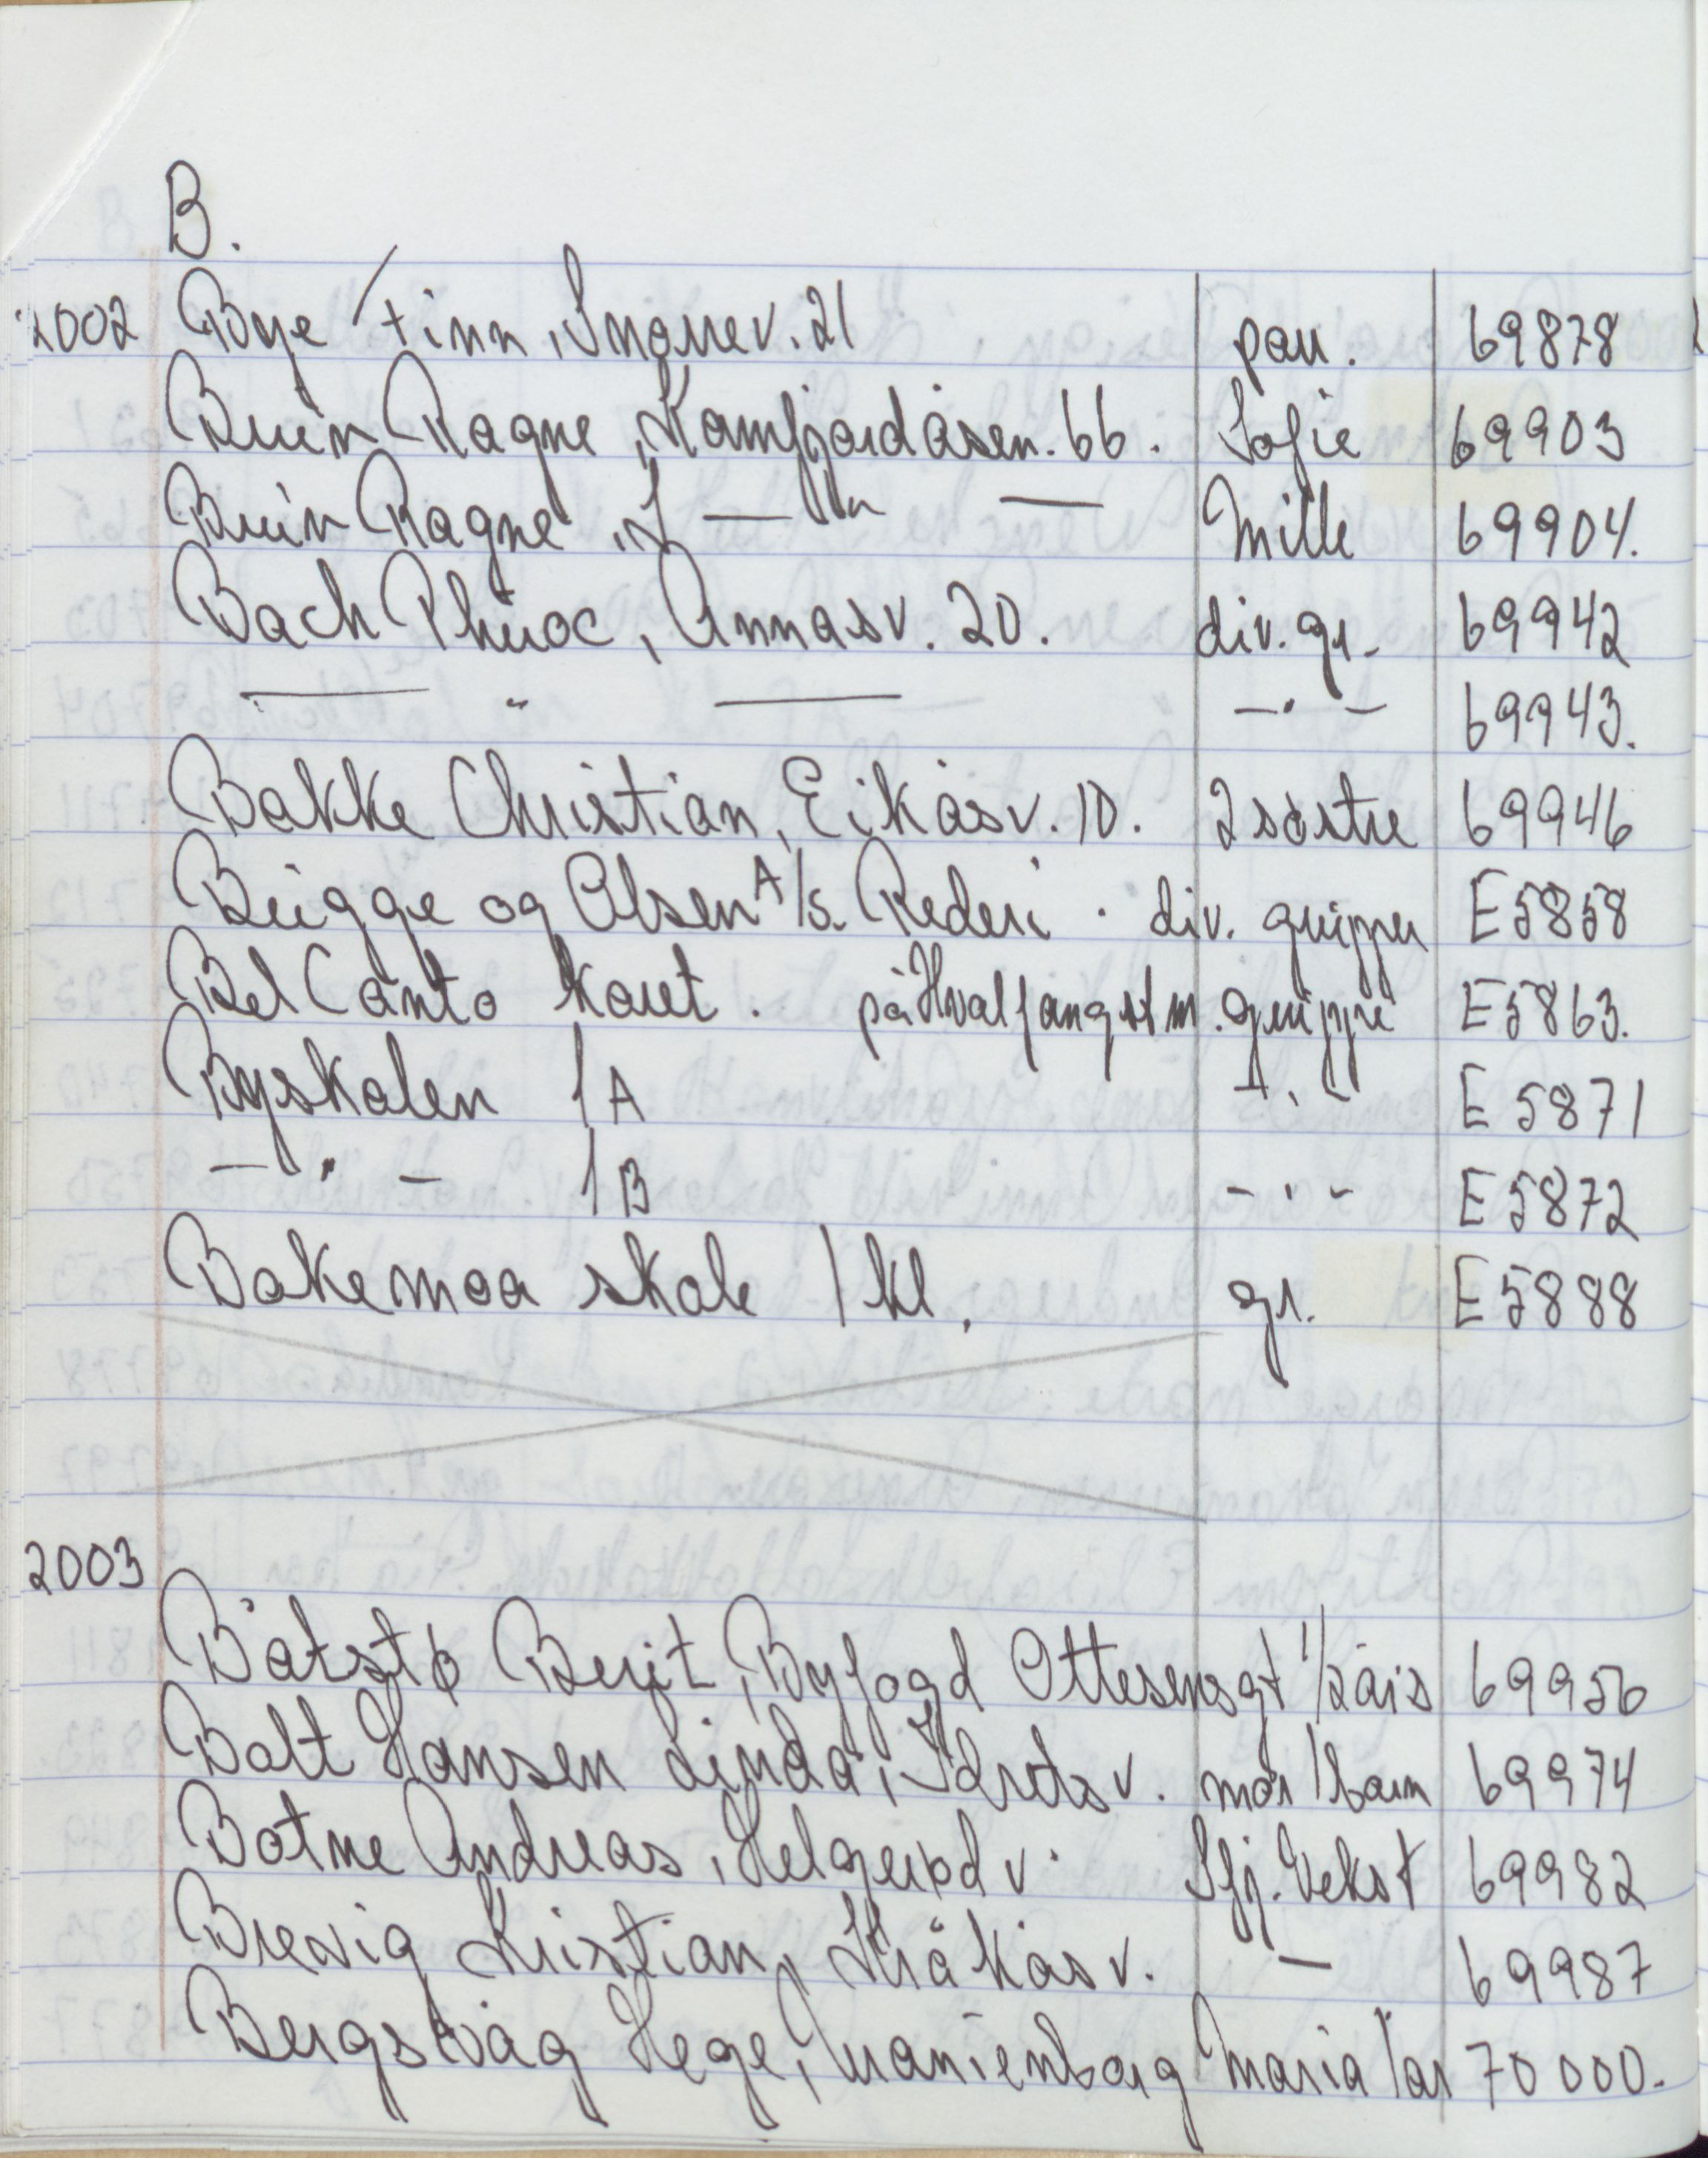 B.
2002 Bye Finn, Snorrev. 21 par. 69878
Bruin Ragne, Kamfjordåsen. 66. Sofie 69903
Bruin Ragne, — " — Mille 69904.
Bach Phuoc, Annasv. 20. div. gr. 69942
— " — — " — 69943.
Bakke Christian, Eikåsv. 10. 2 søstre 69946
Brügge og Olsen A/S. Rederi. div. grupper E5858
Bel Canto Koret. på Hvalfangstm. gruppe E5863.
Byskolen 1A — " — E5871
— " — 1B — " — E5872
Bakemoa skole 1 kl. gr. E5888
2003
Båtstø Berit, Byfogd Ottesensgt 1/2 års 69956
Bolt Hansen Linda, Idrotsv. mor/barn 69974
Botne Andreas, Helgerød v. Sfj. Vekst 69982
Brevig Kristian, Kråkåsv. — 69987
Bergsvåg Hege, Marienborg Maria 1 år 70000.